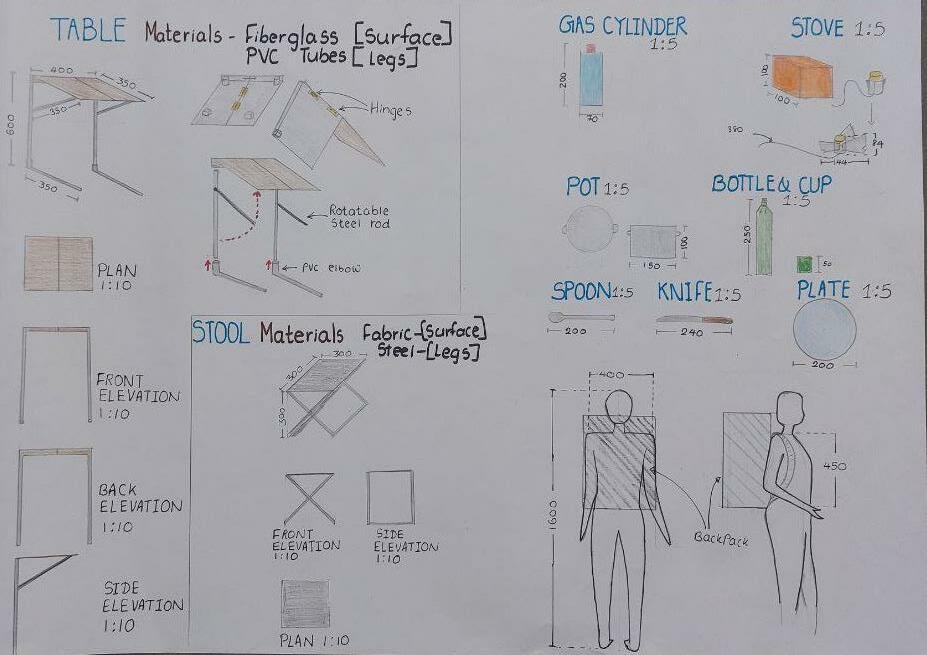 TABLE Materials - Fiberglass [Surface]
PVC Tubes [Legs]
400
350
350
600
350
Hinges
Rotatable
Steel rod
PVC elbow
PLAN
1:10
FRONT
ELEVATION
1:10
BACK
ELEVATION
1:10
SIDE
ELEVATION
1:10
STOOL Materials Fabric-[Surface]
Steel-[Legs]
300
300
300
FRONT
ELEVATION
1:10
SIDE
ELEVATION
1:10
PLAN 1:10
GAS CYLINDER
1:5
200
70
STOVE 1:5
100
100
380
84
44
POT 1:5
100
150
BOTTLE & CUP
1:5
250
50
SPOON 1:5
200
KNIFE 1:5
240
PLATE 1:5
200
400
1600
450
Backpack